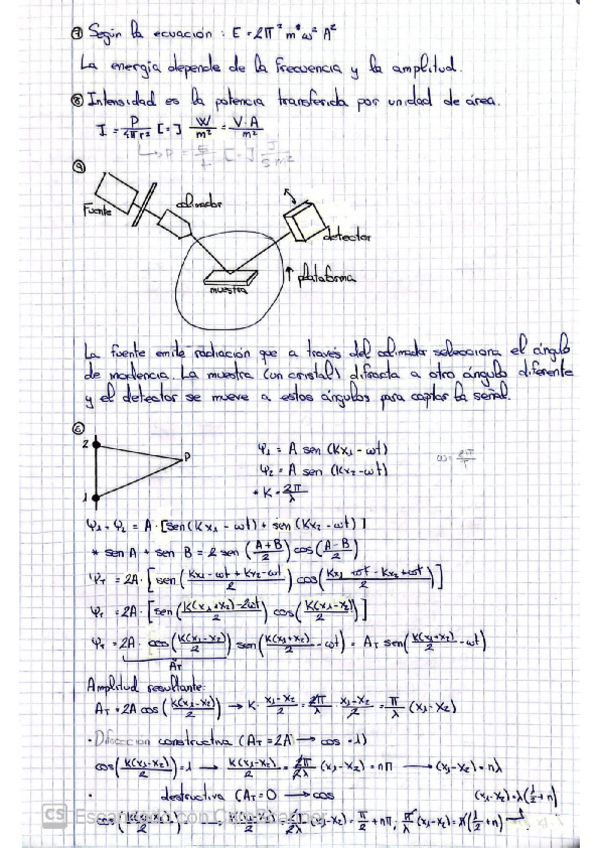 ⑦ Según la ecuación: E = 2π² m* ω² A²
La energía depende de la frecuencia y la amplitud.
⑧ Intensidad es la potencia transferida por unidad de área.
I = P/4πr² [=] W/m² = V·A/m²
↳ P = E/t [=] J/s m²
⑨
Fuente
colimador
detector
plataforma
muestra
La fuente emite radiación que a través del colimador selecciona el ángulo
de incidencia. La muestra (un cristal) difracta a otro ángulo diferente
y el detector se mueve a estos ángulos para captar la señal.
⑥
2
P
1
Ψ₁ = A sen (Kx₁ - ωt)
Ψ₂ = A sen (Kx₂ - ωt)
* K = 2π/λ
ω = 2π/T
Ψ₁ + Ψ₂ = A · [sen(Kx₁ - ωt) + sen (Kx₂ - ωt)]
* sen A + sen B = 2 sen (A+B/2) cos (A-B/2)
Ψᴛ = 2A · [sen (Kx₁ - ωt + Kx₂ - ωt/2) cos (Kx₁ - ωt - Kx₂ + ωt/2)]
Ψᴛ = 2A · [sen (K(x₁+x₂) - 2ωt/2) cos (K(x₁-x₂)/2)]
Ψᴛ = 2A · cos (K(x₁-x₂)/2) sen (K(x₁+x₂)/2 - ωt) = Aᴛ sen (K(x₁+x₂)/2 - ωt)
Aᴛ
Amplitud resultante:
Aᴛ = 2A cos (K(x₁-x₂)/2) → K · x₁-x₂/2 = 2π/λ · x₁-x₂/2 = π/λ (x₁-x₂)
· Difracción constructiva (Aᴛ = 2A → cos = 1)
cos (K(x₁-x₂)/2) = 1 → K(x₁-x₂)/2 = 2π/2λ (x₁-x₂) = nπ → (x₁-x₂) = nλ
· destructiva (Aᴛ = 0 → cos
(x₁-x₂) = λ(1/2 + n)
cos (K(x₁-x₂)/2) K(x₁-x₂)/2 = 2π/2λ (x₁-x₂) = π/2 + nπ, π/λ (x₁-x₂) = π(1/2 + n)
CS Escaneado con CamScanner